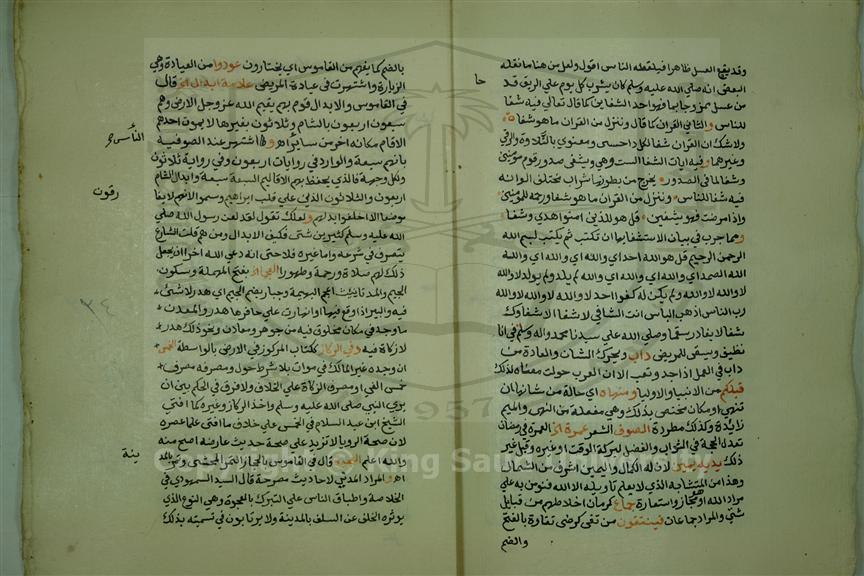 وقد يقع العسل ظاهرا فيلتقطه الناس اقول ولعل من هنا ما نقله
البعض انه صلى الله عليه وسلم كان يشرب كل يوم على الريق قدح
من عسل ممزوج بماء فهو احد الشفاين كما قال تعالى فيه شفا
للناس والثاني القران كما قال وننزل من القران ما هو شفاء
ولا شك ان القران شفا لكل داء حسي ومعنوي بالتلاوة والرقي
وغيرهما وفيه ايات الشفا الست وهي ويشف صدور قوم مؤمنين
وشفا لما في الصدور يخرج من بطونها شراب مختلف الوانه
فيه شفا للناس وننزل من القران ما هو شفا ورحمة للمؤمنين
واذا مرضت فهو يشفين قل هو للذين امنوا هدى وشفا
ومما جرب في بيان الاستشفا بها ان تكتب ثم يكتب بسم الله
الرحمن الرحيم قل هو الله احد اي والله اي والله اي والله
الله الصمد اي والله اي والله اي والله لم يلد ولم يولد لا والله
لا والله لا والله ولم يكن له كفوا احد لا والله لا والله لا والله
رب الناس اذهب الباس انت الشافي لا شفا الا شفاؤك
شفا لا يغادر سقما وصلى الله على سيدنا محمد واله وسلم في انا
نظيف ويسقى للمريض داب ويحرك الشان والعادة من
داب في العمل اذا جد وتعب الا ان العرب حولت معناه لذلك
قبلكم من الانبيا والاوليا ومنهاه اي حالة من شانها ان
تنهى او مكان مختص بذلك وهي مفعلة من النهي والميم
زائدة وكذلك مطردة الصوف الشعر عمرة الخ العمرة في رمضان
تعدل الحجة في الثواب والفضل لبركة الوقت او غيره وقيل غير
ذلك يديه يمين لان له الكمال واليمين اشرف من الشمال
وهذا من المتشابه الذي لا يعلم تاويله الا الله فنومن به على
مراد الله او هو مجاز واستعارة جماع كرمان اخلاطهم من قبايل
شتى والمراد جماعات فينتقون من تنقى كرضى نقاوة بالفتح
والضم
بالضم كما يفهم من القاموس اي يختارون عودوا من العيادة وهي
الزيارة واشتهرت في عيادة المريض علامة ابدال الخ قال
في القاموس والابدال قوم بهم يقيم الله عز وجل الارض وهم
سبعون اربعون بالشام وثلاثون بغيرها لا يموت احدهم
الا قام مكانه اخر من ساير اه واشتهر عند الصوفية
بانهم سبعة والوارد في روايات اربعون وفي رواية ثلاثون
ولكل وجهة فالذي يحفظ بهم الاقاليم السبعة سبعة وابدال الشام
اربعون والثلاثون الذين على قلب ابراهيم وسموا
الله عليه وسلم كثيرين شتى فكيف الابدال ومن هم قلت الشارع
يتصرف في شرعه واما غيره فلا حتى انه دعى الله اخرا ان يجعل
ذلك لهم صلاة ورحمة وطهورا العجما الخ بفتح المهملة وسكون
الجيم والمد تانيث اعجم البهيمة وجبار بضم الجيم اي هدر لا شيء
فيه والبير اذا وقع فيها وانهارت على حافرها هدر والمعدن
ما وجد في مكان مخلوق فيه من جوهر ومعادن ونحو ذلك هدر
لا زكاة فيه وفي الركاز ككتاب المركوز في الارض بالواسطة الخمس
ان وجده غير المالك في موات بلا شرط حول ومصرفه مصرف
خمس الفي او مصرف الزكاة على الخلاف ولا فرق في الحكم بين ان
يرى النبي صلى الله عليه وسلم واخذ الركاز وغيره كما افتى
الشيخ ابن عبد السلام في الخمس على خلاف ما افتى علما عصره
لان صحة الرويا لا تزيد على صحة حديث عارضه اصح منه
والله اعلم العجوة قال في القاموس بالحجاز التمر المحشي وتمر بالمد
اه والمراد المدني لاحاديث مصرحة قال السيد السمهودي في
الخلاصة واطباق الناس على التبرك بالعجوة وهي النوع الذي
يوثره الخلف عن السلف بالمدينة ولا يرتابون في تسميته بذلك
حا
الناس
رقون
٣٤
ينة
Copyright © King Saud University
1957